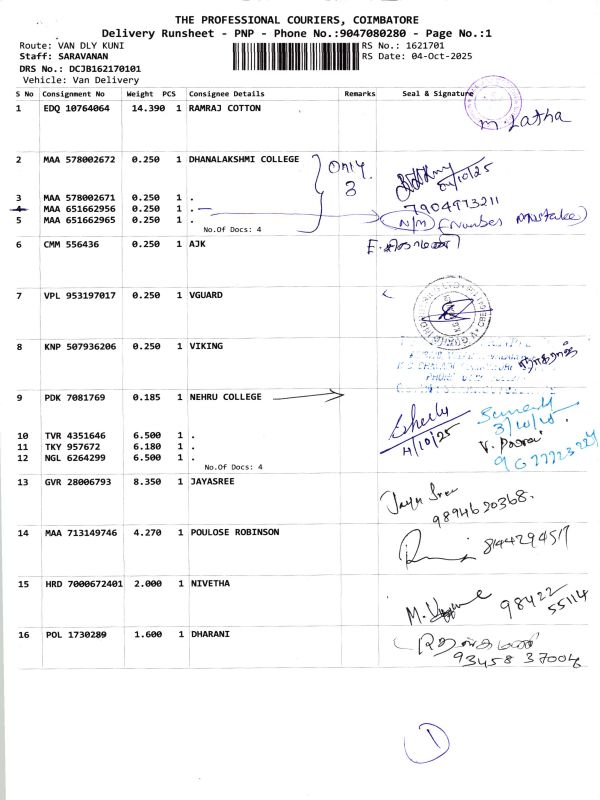 THE PROFESSIONAL COURIERS, COIMBATORE
Delivery Runsheet - PNP - Phone No.:9047080280 - Page No.:1
Route: VAN DLY KUNI RS No.: 1621701
Staff: SARAVANAN RS Date: 04-Oct-2025
DRS No.: DCJB162170101
Vehicle: Van Delivery
S No Consignment No Weight PCS Consignee Details Remarks Seal & Signature
1 EDQ 10764064 14.390 1 RAMRAJ COTTON
M. Latha
2 MAA 578002672 0.250 1 DHANALAKSHMI COLLEGE
Only 3
04/10/25
7904973211
3 MAA 578002671 0.250 1 .
4 MAA 651662956 0.250 1 .
N/M (Number Mistake)
5 MAA 651662965 0.250 1 .
No.Of Docs: 4
6 CMM 556436 0.250 1 AJK
7 VPL 953197017 0.250 1 VGUARD
8 KNP 507936206 0.250 1 VIKING
9 PDK 7081769 0.185 1 NEHRU COLLEGE
4/10/25
10 TVR 4351646 6.500 1 .
11 TKY 957672 6.180 1 .
12 NGL 6264299 6.500 1 .
No.Of Docs: 4
13 GVR 28006793 8.350 1 JAYASREE
Jaya Sree
9894620368.
14 MAA 713149746 4.270 1 POULOSE ROBINSON
8144294517
15 HRD 7000672401 2.000 1 NIVETHA
98422
55114
16 POL 1730289 1.600 1 DHARANI
93458 37004
1